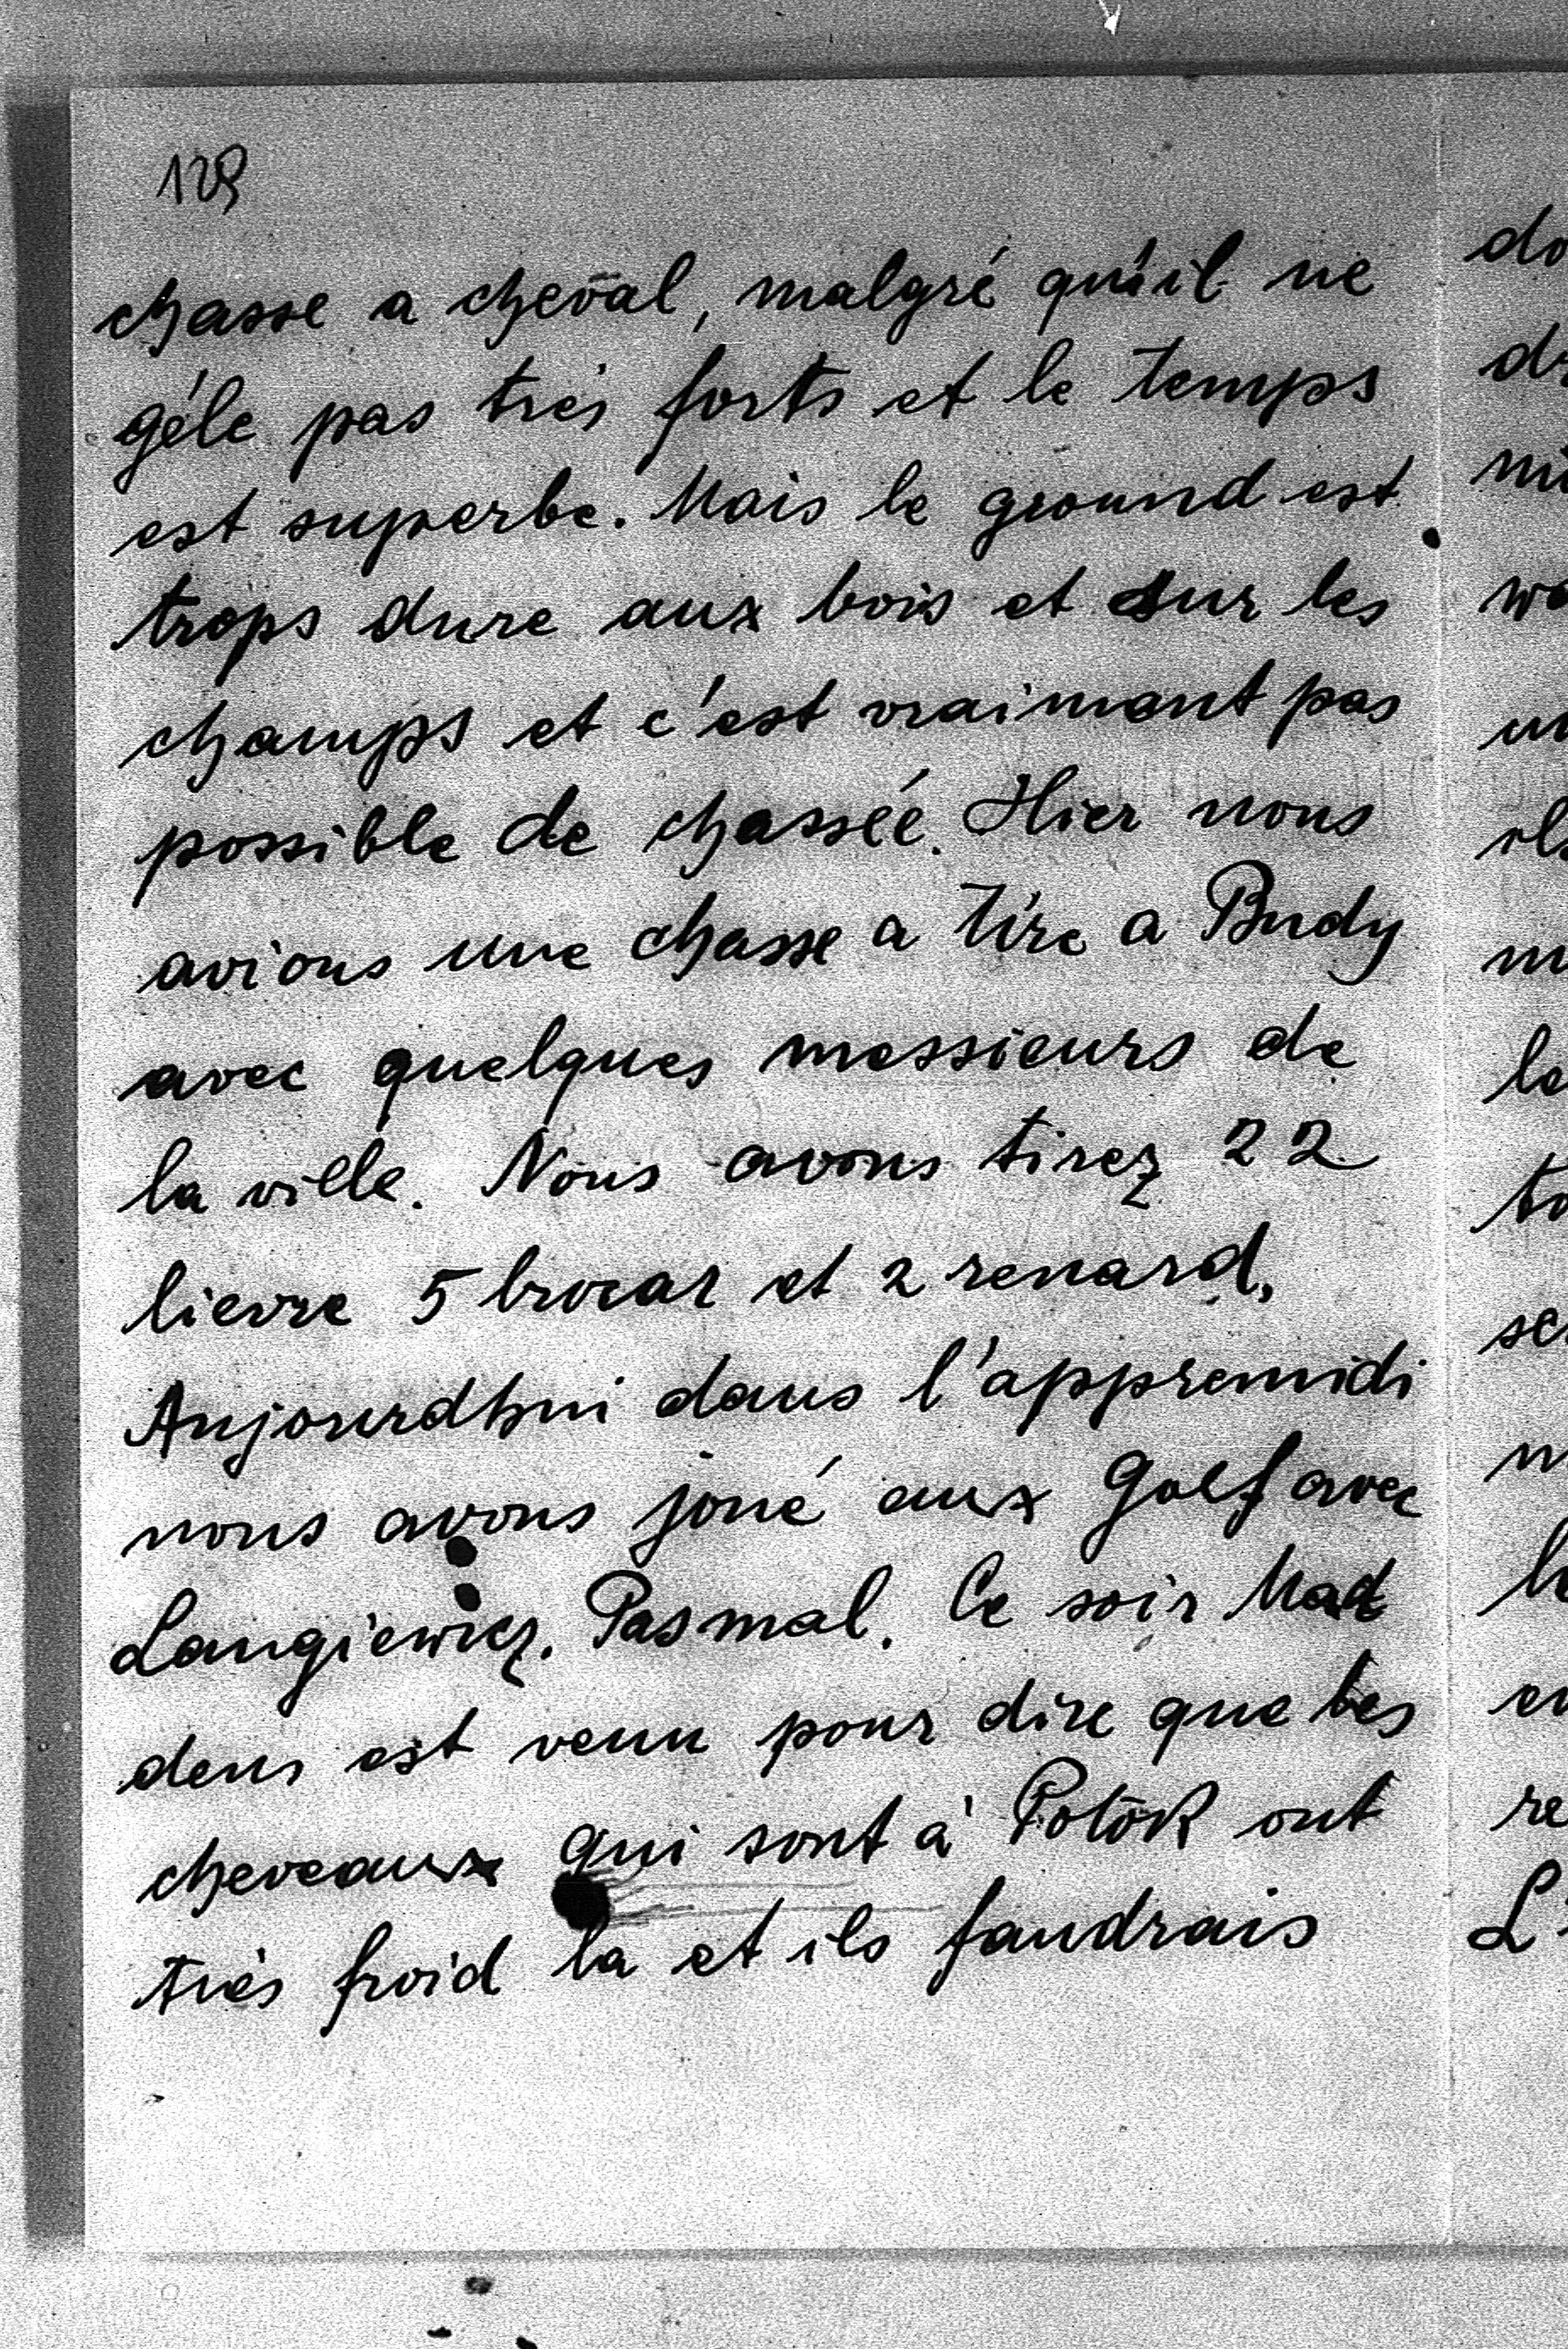 129
chasse a cheval, malgré qu'il ne
géle pas trés forts et le temps
est superbe. Mais le ground est
trops dure aux bois et sur les
champs et c'est vraimant pas
possible de chasséé. Hier nous
avions une chasse a tire a Budy
avec quelques messieurs de
la ville. Nous avons tirez 22
lievre 5 brocar et 2 renard,
Aujourdhui dans l'appremidi
nous avons joué aux Golf avec
Langiewicz. Pas mal. Ce soir Mad
deus est venu pour dire que les
cheveaux qui sont à Potok ont
trés froid la et ils faudrais